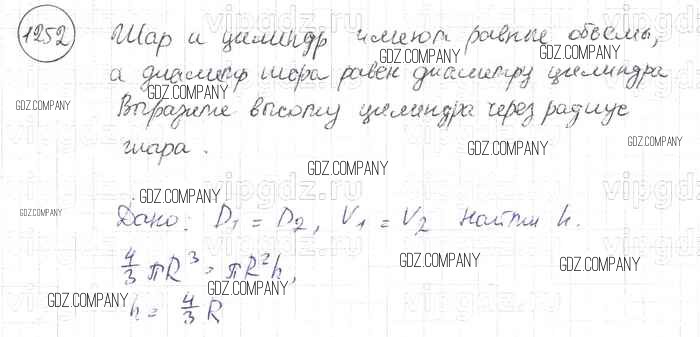 1252
Шар и цилиндр имеют равные объемы,
а диаметр шара равен диаметру цилиндра
Выразите высоту цилиндра через радиус
шара.
Дано: D₁ = D₂, V₁ = V₂ найти h.
4/3 πR³ = πR²h,
h = 4/3 R
GDZ.COMPANY
GDZ.COMPANY
GDZ.COMPANY
GDZ.COMPANY
GDZ.COMPANY
GDZ.COMPANY
GDZ.COMPANY
GDZ.COMPANY
GDZ.COMPANY
GDZ.COMPANY
GDZ.COMPANY
GDZ.COMPANY
GDZ.COMPANY
GDZ.COMPANY
vipgdz.ru
vipgdz.ru
vipgdz.ru
vipgdz.ru